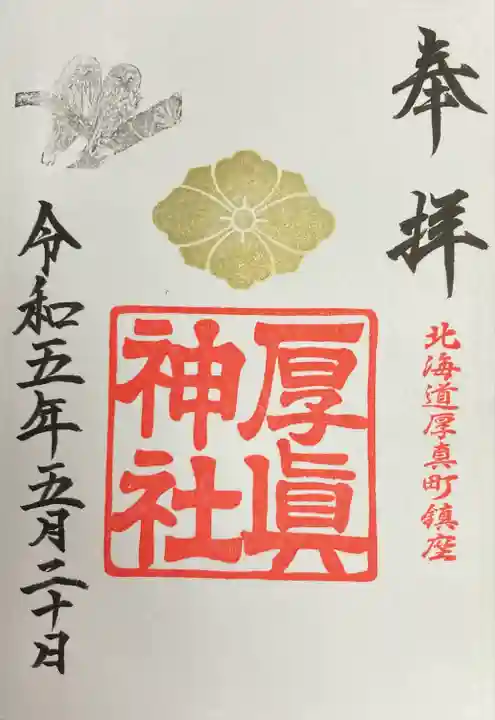 奉拝
北海道厚真町鎮座
厚眞
神社
令和五年五月二十日